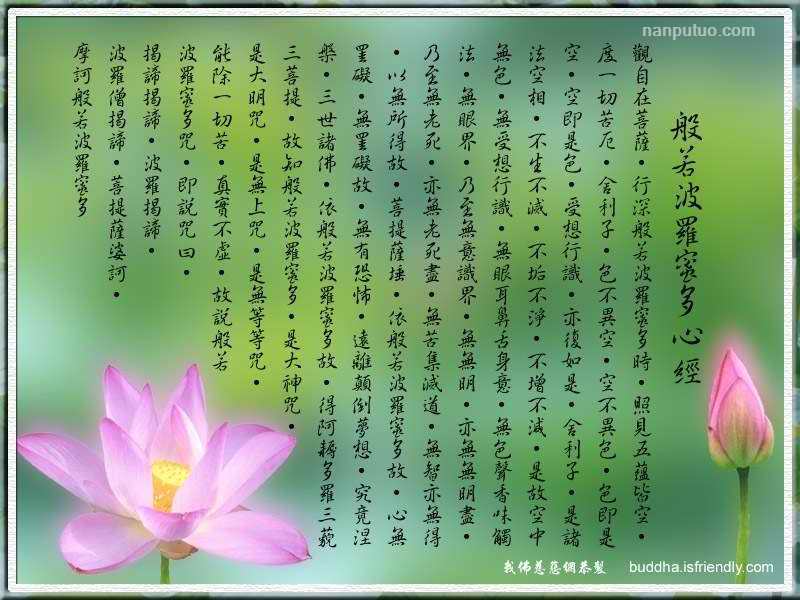 nanputuo.com
般若波羅蜜多心經
觀自在菩薩•行深般若波羅蜜多時•照見五蘊皆空•
度一切苦厄•舍利子•色不異空•空不異色•色即是
空•空即是色•受想行識•亦復如是•舍利子•是諸
法空相•不生不滅•不垢不淨•不增不減•是故空中
無色•無受想行識•無眼耳鼻舌身意•無色聲香味觸
法•無眼界•乃至無意識界•無無明•亦無無明盡•
乃至無老死•亦無老死盡•無苦集滅道•無智亦無得
•以無所得故•菩提薩埵•依般若波羅蜜多故•心無
罣礙•無罣礙故•無有恐怖•遠離顛倒夢想•究竟涅
槃•三世諸佛•依般若波羅蜜多故•得阿耨多羅三藐
三菩提•故知般若波羅蜜多•是大神咒•
是大明咒•是無上咒•是無等等咒•
能除一切苦•真實不虛•故說般若
波羅蜜多咒•即說咒曰•
揭諦揭諦•波羅揭諦•
波羅僧揭諦•菩提薩婆訶•
摩訶般若波羅蜜多
我佛慈悲網恭製 buddha.isfriendly.com